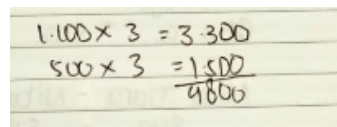 1.100 x 3 = 3.300
500 x 3 = 1.500
4800